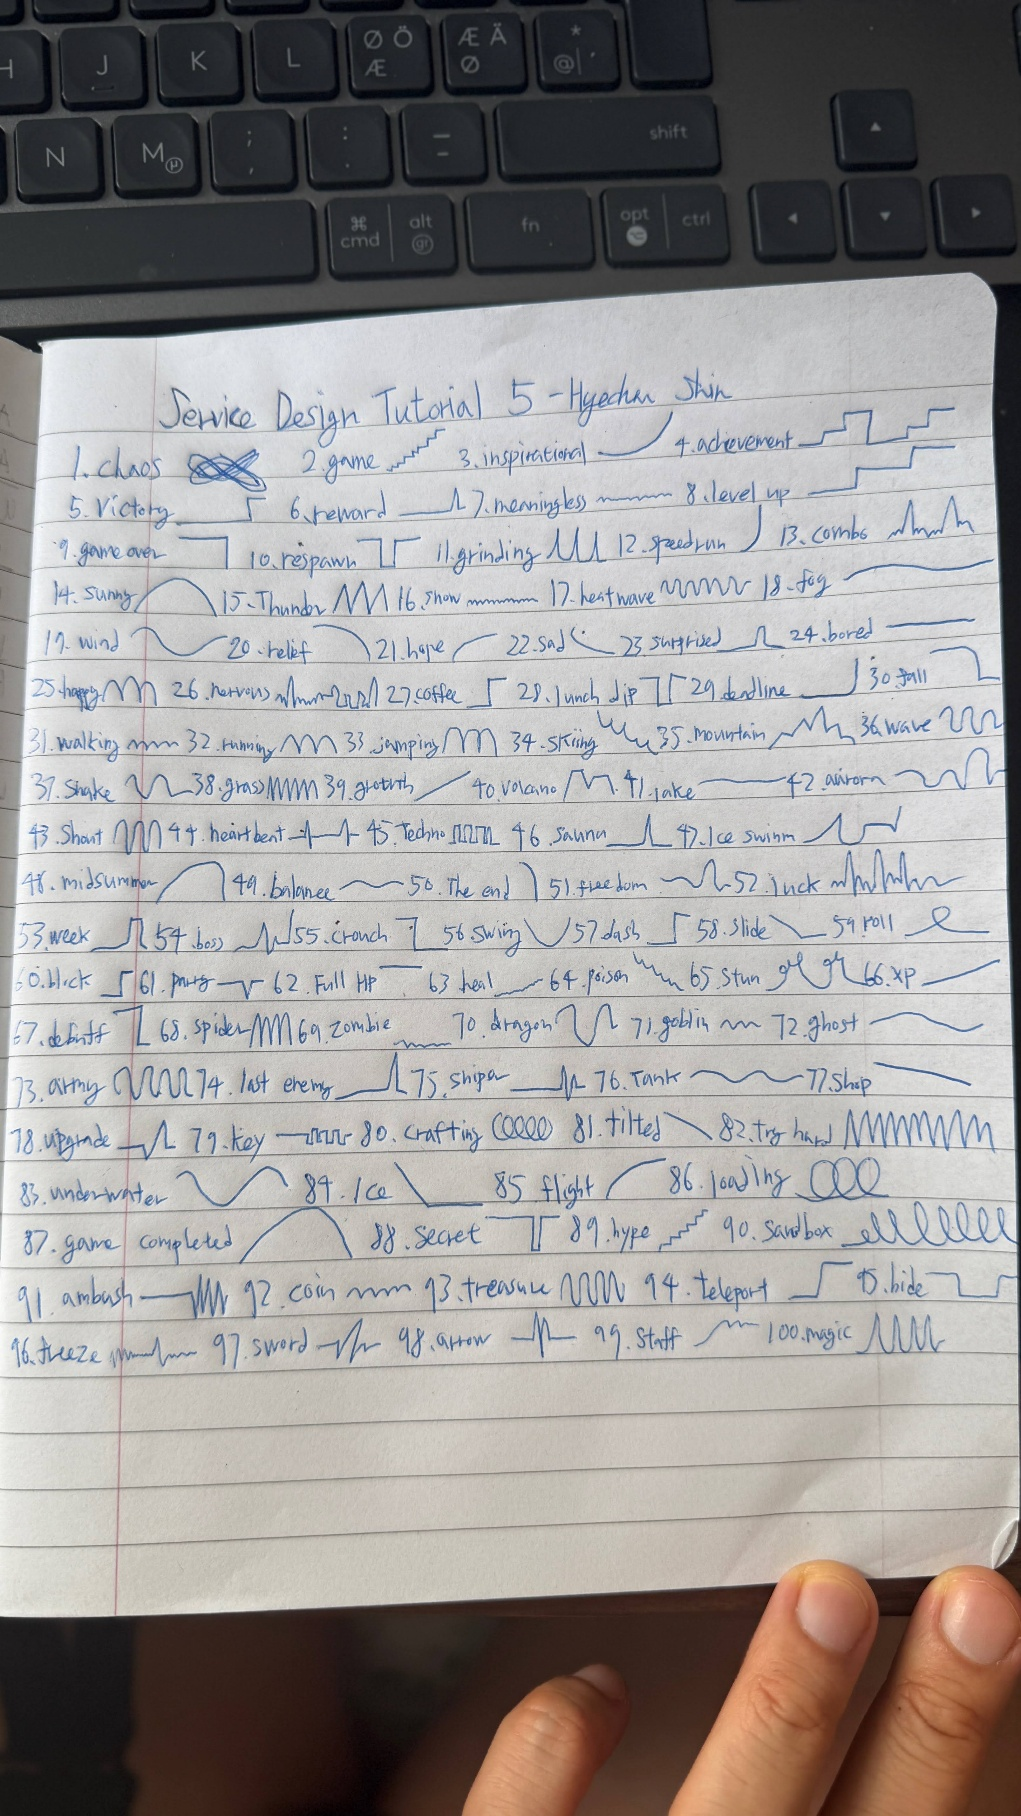 H J K L Ø Ö Æ Æ Ä Ø * @ '
N M µ ; , : . — – shift
⌘ cmd alt gr fn opt ⌥ ctrl
Service Design Tutorial 5 - Hyechan Shin
1. chaos 2. game 3. inspirational 4. achievement
5. Victory 6. reward 7. meaningless 8. level up
9. game over 10. respawn 11. grinding 12. speedrun 13. combo
14. sunny 15. Thunder 16. snow 17. heatwave 18. fog
19. wind 20. relief 21. hope 22. sad 23. surprised 24. bored
25. happy 26. nervous 27. coffee 28. lunch dip 29. deadline 30. fall
31. walking 32. running 33. jumping 34. skiing 35. mountain 36. wave
37. Snake 38. grass 39. growth 40. volcano 41. lake 42. aurora
43. Shout 44. heartbeat 45. Techno 46. sauna 47. Ice swimm
48. midsummer 49. balance 50. The end 51. freedom 52. luck
53. week 54. boss 55. crouch 56. swing 57. dash 58. slide 59. roll
60. block 61. parry 62. Full HP 63. heal 64. poison 65. stun 66. XP
67. debuff 68. spider 69. zombie 70. dragon 71. goblin 72. ghost
73. army 74. last enemy 75. sniper 76. Tank 77. Ship
78. upgrade 79. key 80. crafting 81. tilted 82. try hard
83. underwater 84. Ice 85. flight 86. loading
87. game completed 88. secret 89. hype 90. sandbox
91. ambush 92. coin 93. treasure 94. teleport 95. hide
96. freeze 97. sword 98. arrow 99. Staff 100. magic